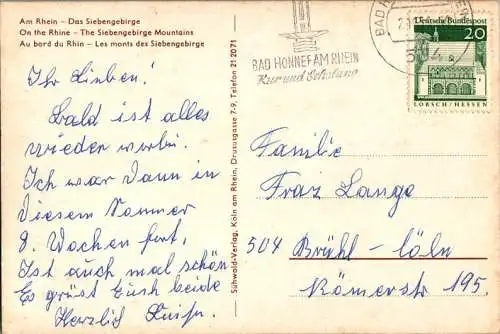 Am Rhein – Das Siebengebirge
On the Rhine – The Siebengebirge Mountains
Au bord du Rhin – Les monts des Siebengebirge
Ihr Lieben!
Bald ist alles
wieder vorbei.
Ich war dann in
diesem Sommer
8. Wochen fort.
Ist auch mal schön
Es grüst Euch beide
Herzlich
Sühwald-Verlag, Köln am Rhein, Drususgasse 7-9, Telefon 21 20 71
BAD HONNEF AM RHEIN
Kur und Erholung
BAD HONNEF
504
Deutsche Bundespost
20
LORSCH/HESSEN
Familie
Franz Lange
504 Brühl – Cöln
Römerstr 195.